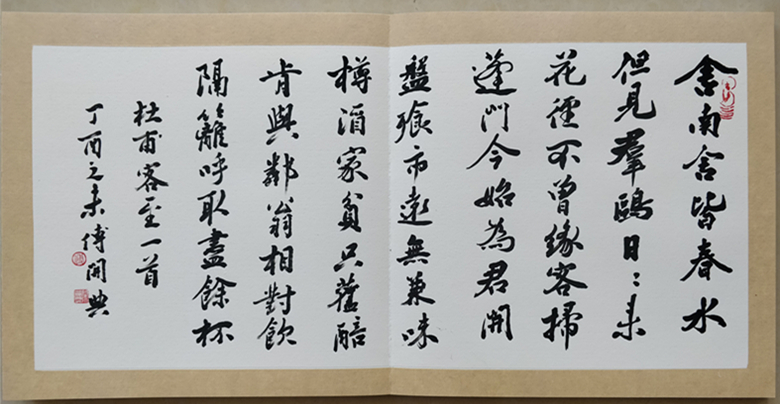 舍南舍皆春水
但見羣鷗日〻來
花徑不曾緣客掃
蓬門今始為君開
盤飱市遠無兼味
樽酒家貧只舊醅
肯與鄰翁相對飲
隔籬呼取盡餘杯
杜甫客至一首
丁酉之末傅開典